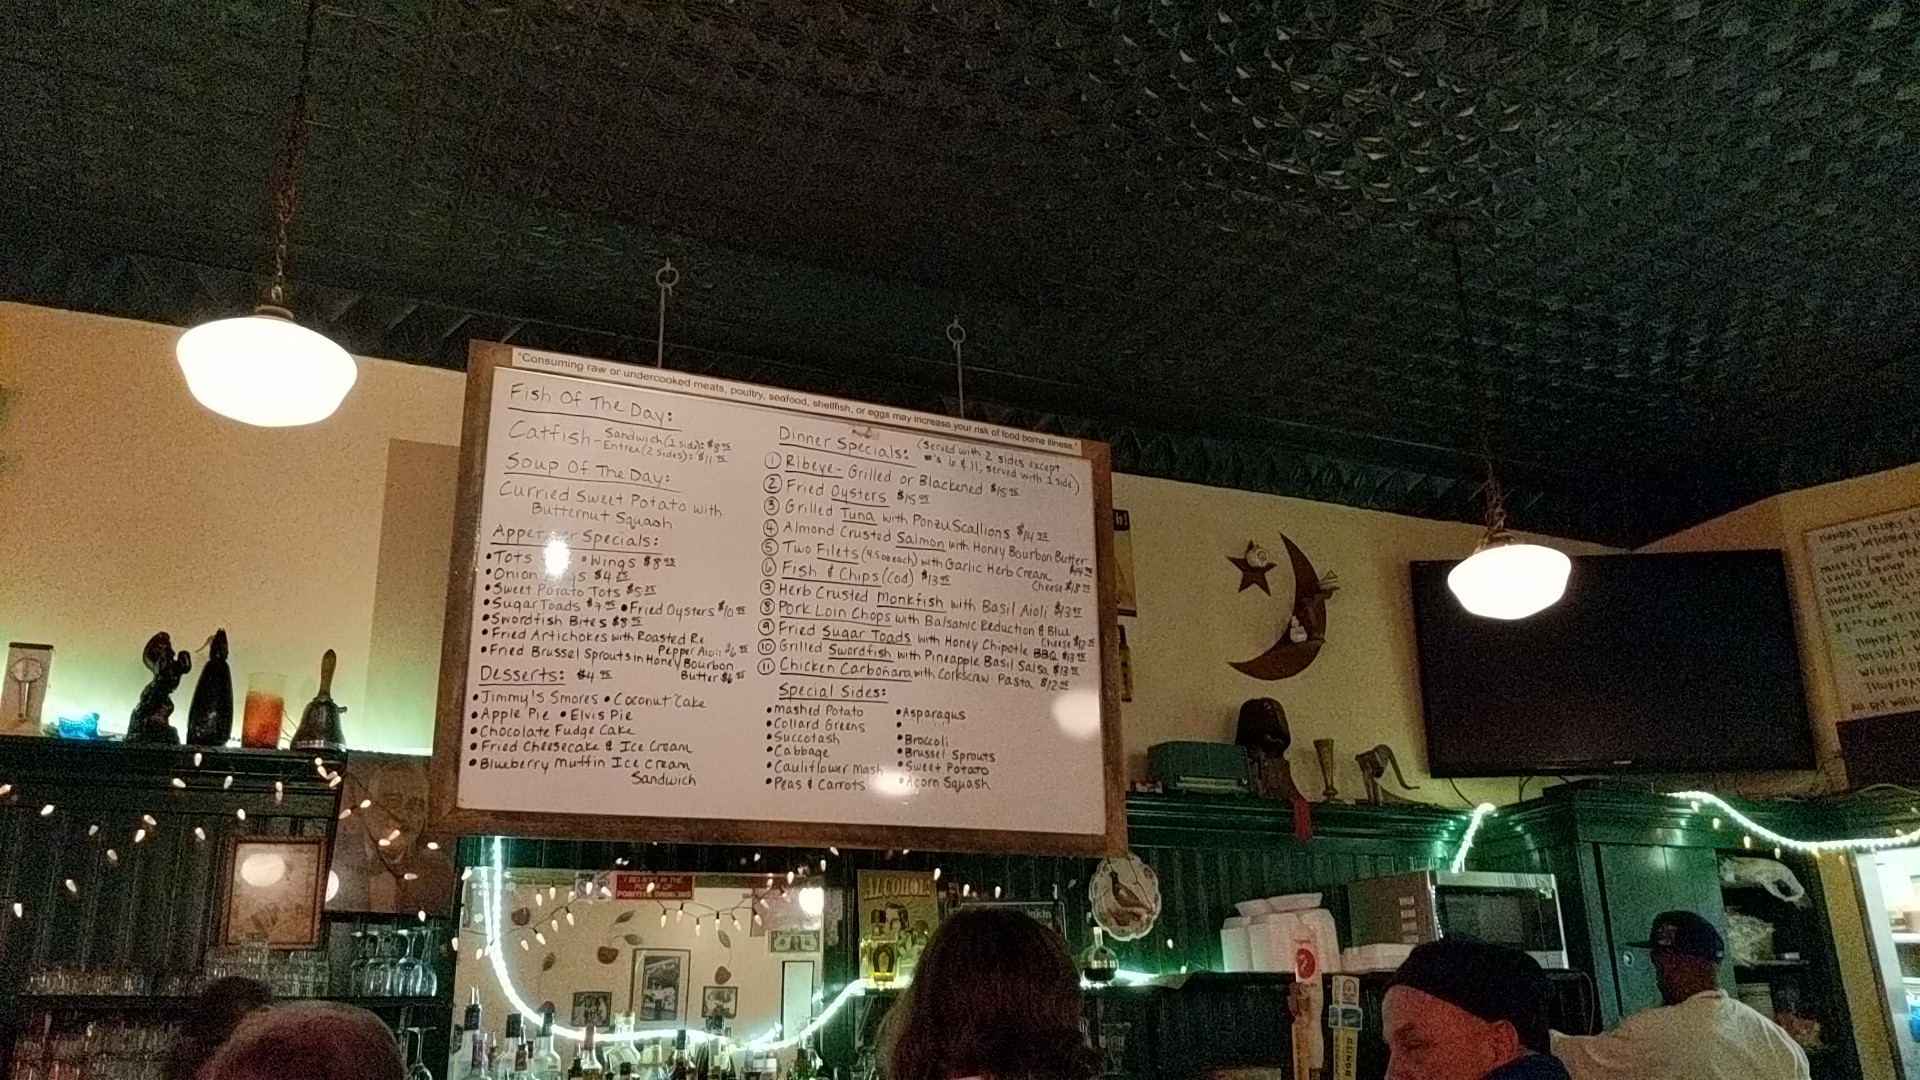 "Consuming raw or undercooked meats, poultry, seafood, shellfish, or eggs may increase your risk of food borne illness."
Fish Of The Day:
Catfish - Sandwich (1 side): $8.95
Entree (2 sides): $11.95
Soup Of The Day:
Curried Sweet Potato with
Butternut Squash
Specials:
• Tots • Wings $8.95
• Onion $4.25
• Sweet Potato Tots $5.25
• Sugar Toads $7.95 • Fried Oysters $10.95
• Swordfish Bites $8.95
• Fried Artichokes with Roasted Re
Pepper Aioli $6.95
• Fried Brussel Sprouts in Honey Bourbon
Butter $6.95
Desserts: $4.95
• Jimmy's Smores • Coconut Cake
• Apple Pie • Elvis Pie
• Chocolate Fudge Cake
• Fried Cheesecake & Ice Cream
• Blueberry Muffin Ice Cream
Sandwich
Dinner Specials: (Served with 2 sides except
#'s 6 & 11, served with 1 side)
① Ribeye - Grilled or Blackened $15.95
② Fried Oysters $15.95
③ Grilled Tuna with Ponzu Scallions $14.95
④ Almond Crusted Salmon with Honey Bourbon Butter
⑤ Two Filets (4.5oz each) with Garlic Herb Cream
Cheese $18.95
⑥ Fish & Chips (Cod) $13.95
⑦ Herb Crusted Monkfish with Basil Aioli $13.95
⑧ Pork Loin Chops with Balsamic Reduction & Blue
Cheese $12.95
⑨ Fried Sugar Toads with Honey Chipotle BBQ $13.95
⑩ Grilled Swordfish with Pineapple Basil Salsa $13.95
⑪ Chicken Carbonara with Corkscrew Pasta $12.95
Special Sides:
• Mashed Potato
• Collard Greens
• Succotash
• Cabbage
• Cauliflower Mash
• Peas & Carrots
• Asparagus
•
• Broccoli
• Brussel Sprouts
• Sweet Potato
• Acorn Squash
I BELIEVE IN THE
POWER OF
POSITIVE DRINKING
ALCOHOL